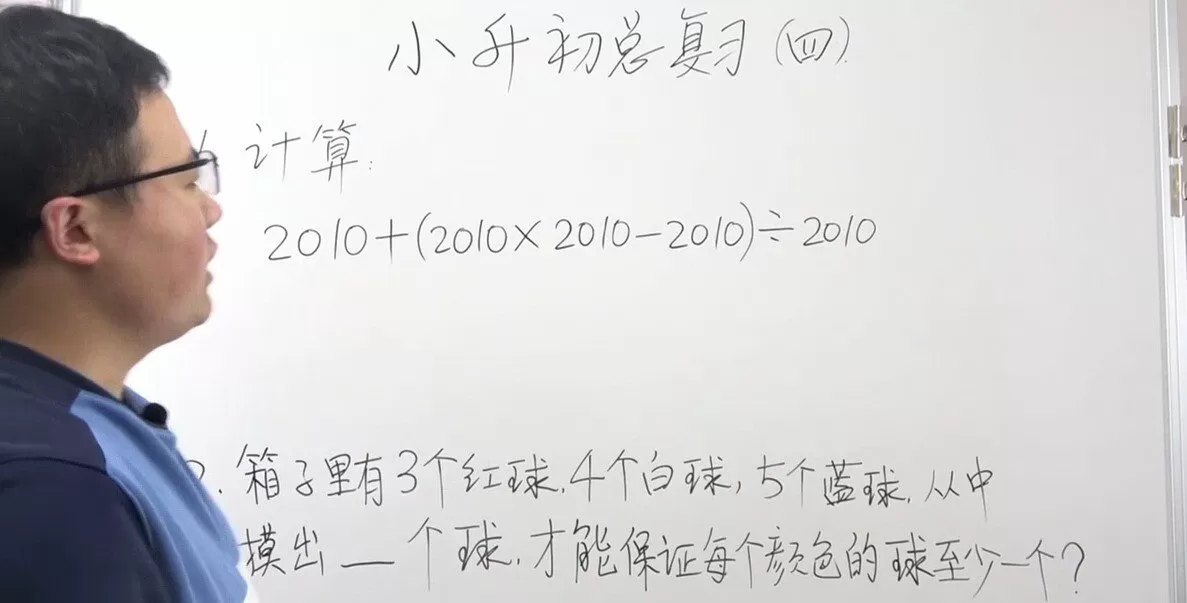 小升初总复习(四)
1. 计算:
2010+(2010×2010-2010)÷2010
2. 箱子里有3个红球,4个白球,5个蓝球,从中
摸出__个球,才能保证每个颜色的球至少一个?